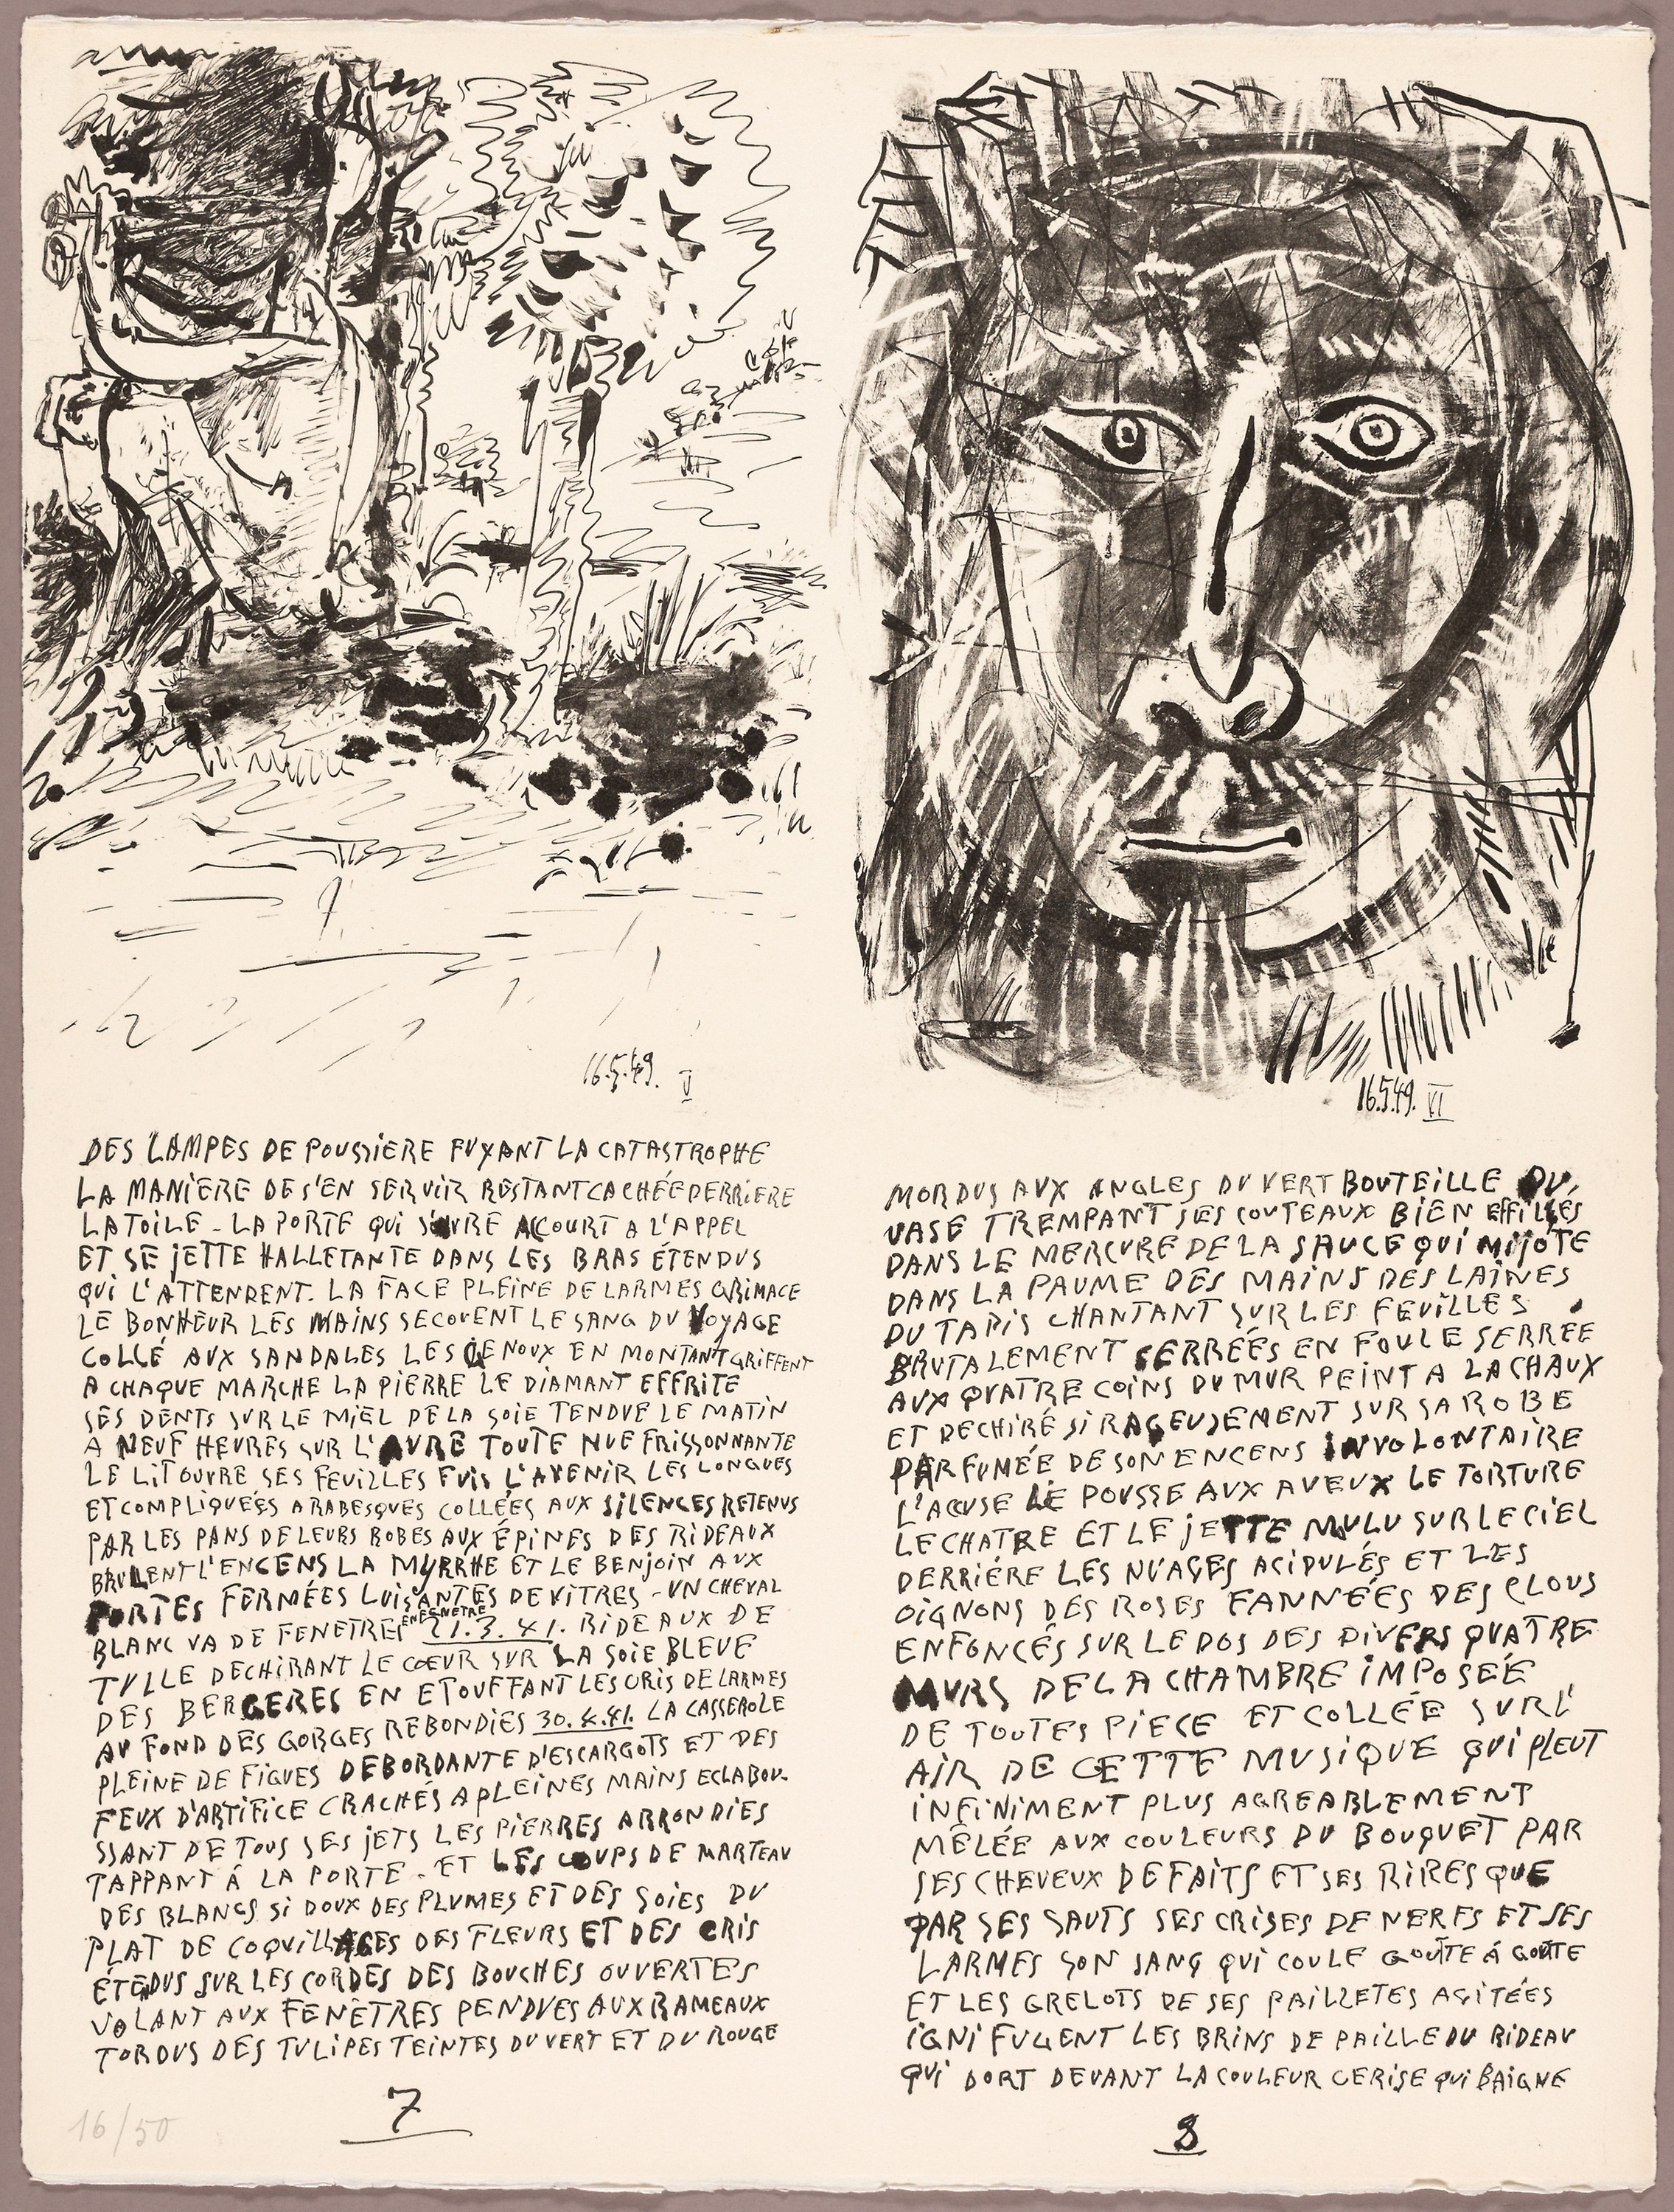 16.5.49. V
DES LAMPES DE POUSSIERE FUYANT LA CATASTROPHE
LA MANIERE DE S'EN SERVIR RESTANT CACHÉE DERRIERE
LA TOILE - LA PORTE QUI S'OUVRE ACCOURT A L'APPEL
ET SE JETTE HALLETANTE DANS LES BRAS ÉTENDUS
QUI L'ATTENDENT. LA FACE PLEINE DE LARMES GRIMACE
LE BONHEUR LES MAINS SECOUENT LE SANG DU VOYAGE
COLLÉ AUX SANDALES LES GENOUX EN MONTANT GRIFFENT
A CHAQUE MARCHE LA PIERRE LE DIAMANT EFFRITE
SES DENTS SUR LE MIEL DE LA SOIE TENDUE LE MATIN
A NEUF HEURES SUR L' TOUTE NUE FRISSONNANTE
LE LIT OUVRE SES FEUILLES L'AVENIR LES LONGUES
ET COMPLIQUÉES ARABESQUES COLLÉES AUX SILENCES RETENUS
PAR LES PANS DE LEURS ROBES AUX ÉPINES DES RIDEAUX
BRULENT L'ENCENS LA MYRRHE ET LE BENJOIN AUX
PORTES FERMÉES LUISANTES DE VITRES - UN CHEVAL
BLANC VA DE FENETRE EN FENETRE 21.3.41. RIDEAUX DE
TULLE DECHIRANT LE CŒUR SUR LA SOIE BLEUE
DES BERGERES EN ETOUFFANT LES CRIS DE LARMES
AU FOND DES GORGES REBONDIES 30.4.41. LA CASSEROLE
PLEINE DE FIGUES DEBORDANTE D'ESCARGOTS ET DES
FEUX D'ARTIFICE CRACHÉS A PLEINES MAINS ECLABOU-
SSANT DE TOUS SES JETS LES PIERRES ARRONDIES
TAPPANT Á LA PORTE - ET LES COUPS DE MARTEAU
DES BLANCS SI DOUX DES PLUMES ET DES SOIES DU
PLAT DE COQUILLAGES DES FLEURS ET DES CRIS
ÉTENDUS SUR LES CORDES DES BOUCHES OUVERTES
VOLANT AUX FENÊTRES PENDUES AUX RAMEAUX
TORDUS DES TULIPES TEINTES DU VERT ET DU ROUGE
7
16/50
16.5.49. VI
MORDUS AUX ANGLES DU VERT BOUTEILLE DU
VASE TREMPANT SES COUTEAUX BIEN EFFILÉS
DANS LE MERCURE DE LA SAUCE QUI MIJOTE
DANS LA PAUME DES MAINS DES LAINES
DU TAPIS CHANTANT SUR LES FEUILLES
BRUTALEMENT SERRÉES EN FOULE SERREE
AUX QUATRE COINS DU MUR PEINT A LA CHAUX
ET DECHIRÉ SI RAGEUSEMENT SUR SA ROBE
PARFUMÉE DE SON ENCENS INVOLONTAIRE
L'ACCUSE LE POUSSE AUX AVEUX LE TORTURE
LE CHATRE ET LE JETTE MULU SUR LE CIEL
DERRIÉRE LES NUAGES ACIDULÉS ET LES
OIGNONS DES ROSES FANNÉES DES CLOUS
ENFONCÉS SUR LE DOS DES DIVERS QUATRE
MURS DE LA CHAMBRE IMPOSÉE
DE TOUTES PIECE ET COLLÉE SUR L'
AIR DE CETTE MUSIQUE QUI PLEUT
INFINIMENT PLUS AGREABLEMENT
MÊLÉE AUX COULEURS DU BOUQUET PAR
SES CHEVEUX DEFAITS ET SES RIRES QUE
PAR SES SAUTS SES CRISES DE NERFS ET SES
LARMES SON SANG QUI COULE GOUTE Á GOUTE
ET LES GRELOTS DE SES PAILLETES AGITÉES
IGNIFUGENT LES BRINS DE PAILLE DU RIDEAU
QUI DORT DEVANT LA COULEUR CERISE QUI BAIGNE
8